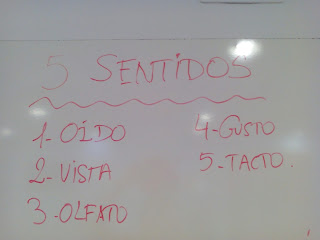 5 SENTIDOS
1-OÍDO
2-VISTA
3-OLFATO
4-GUSTO
5-TACTO.